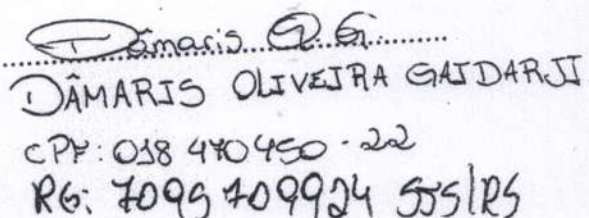 Dâmaris O. G.
DÂMARIS OLIVEIRA GAIDARJI
CPF: 018 470 450 - 22
RG: 7095709924 SJS/RS